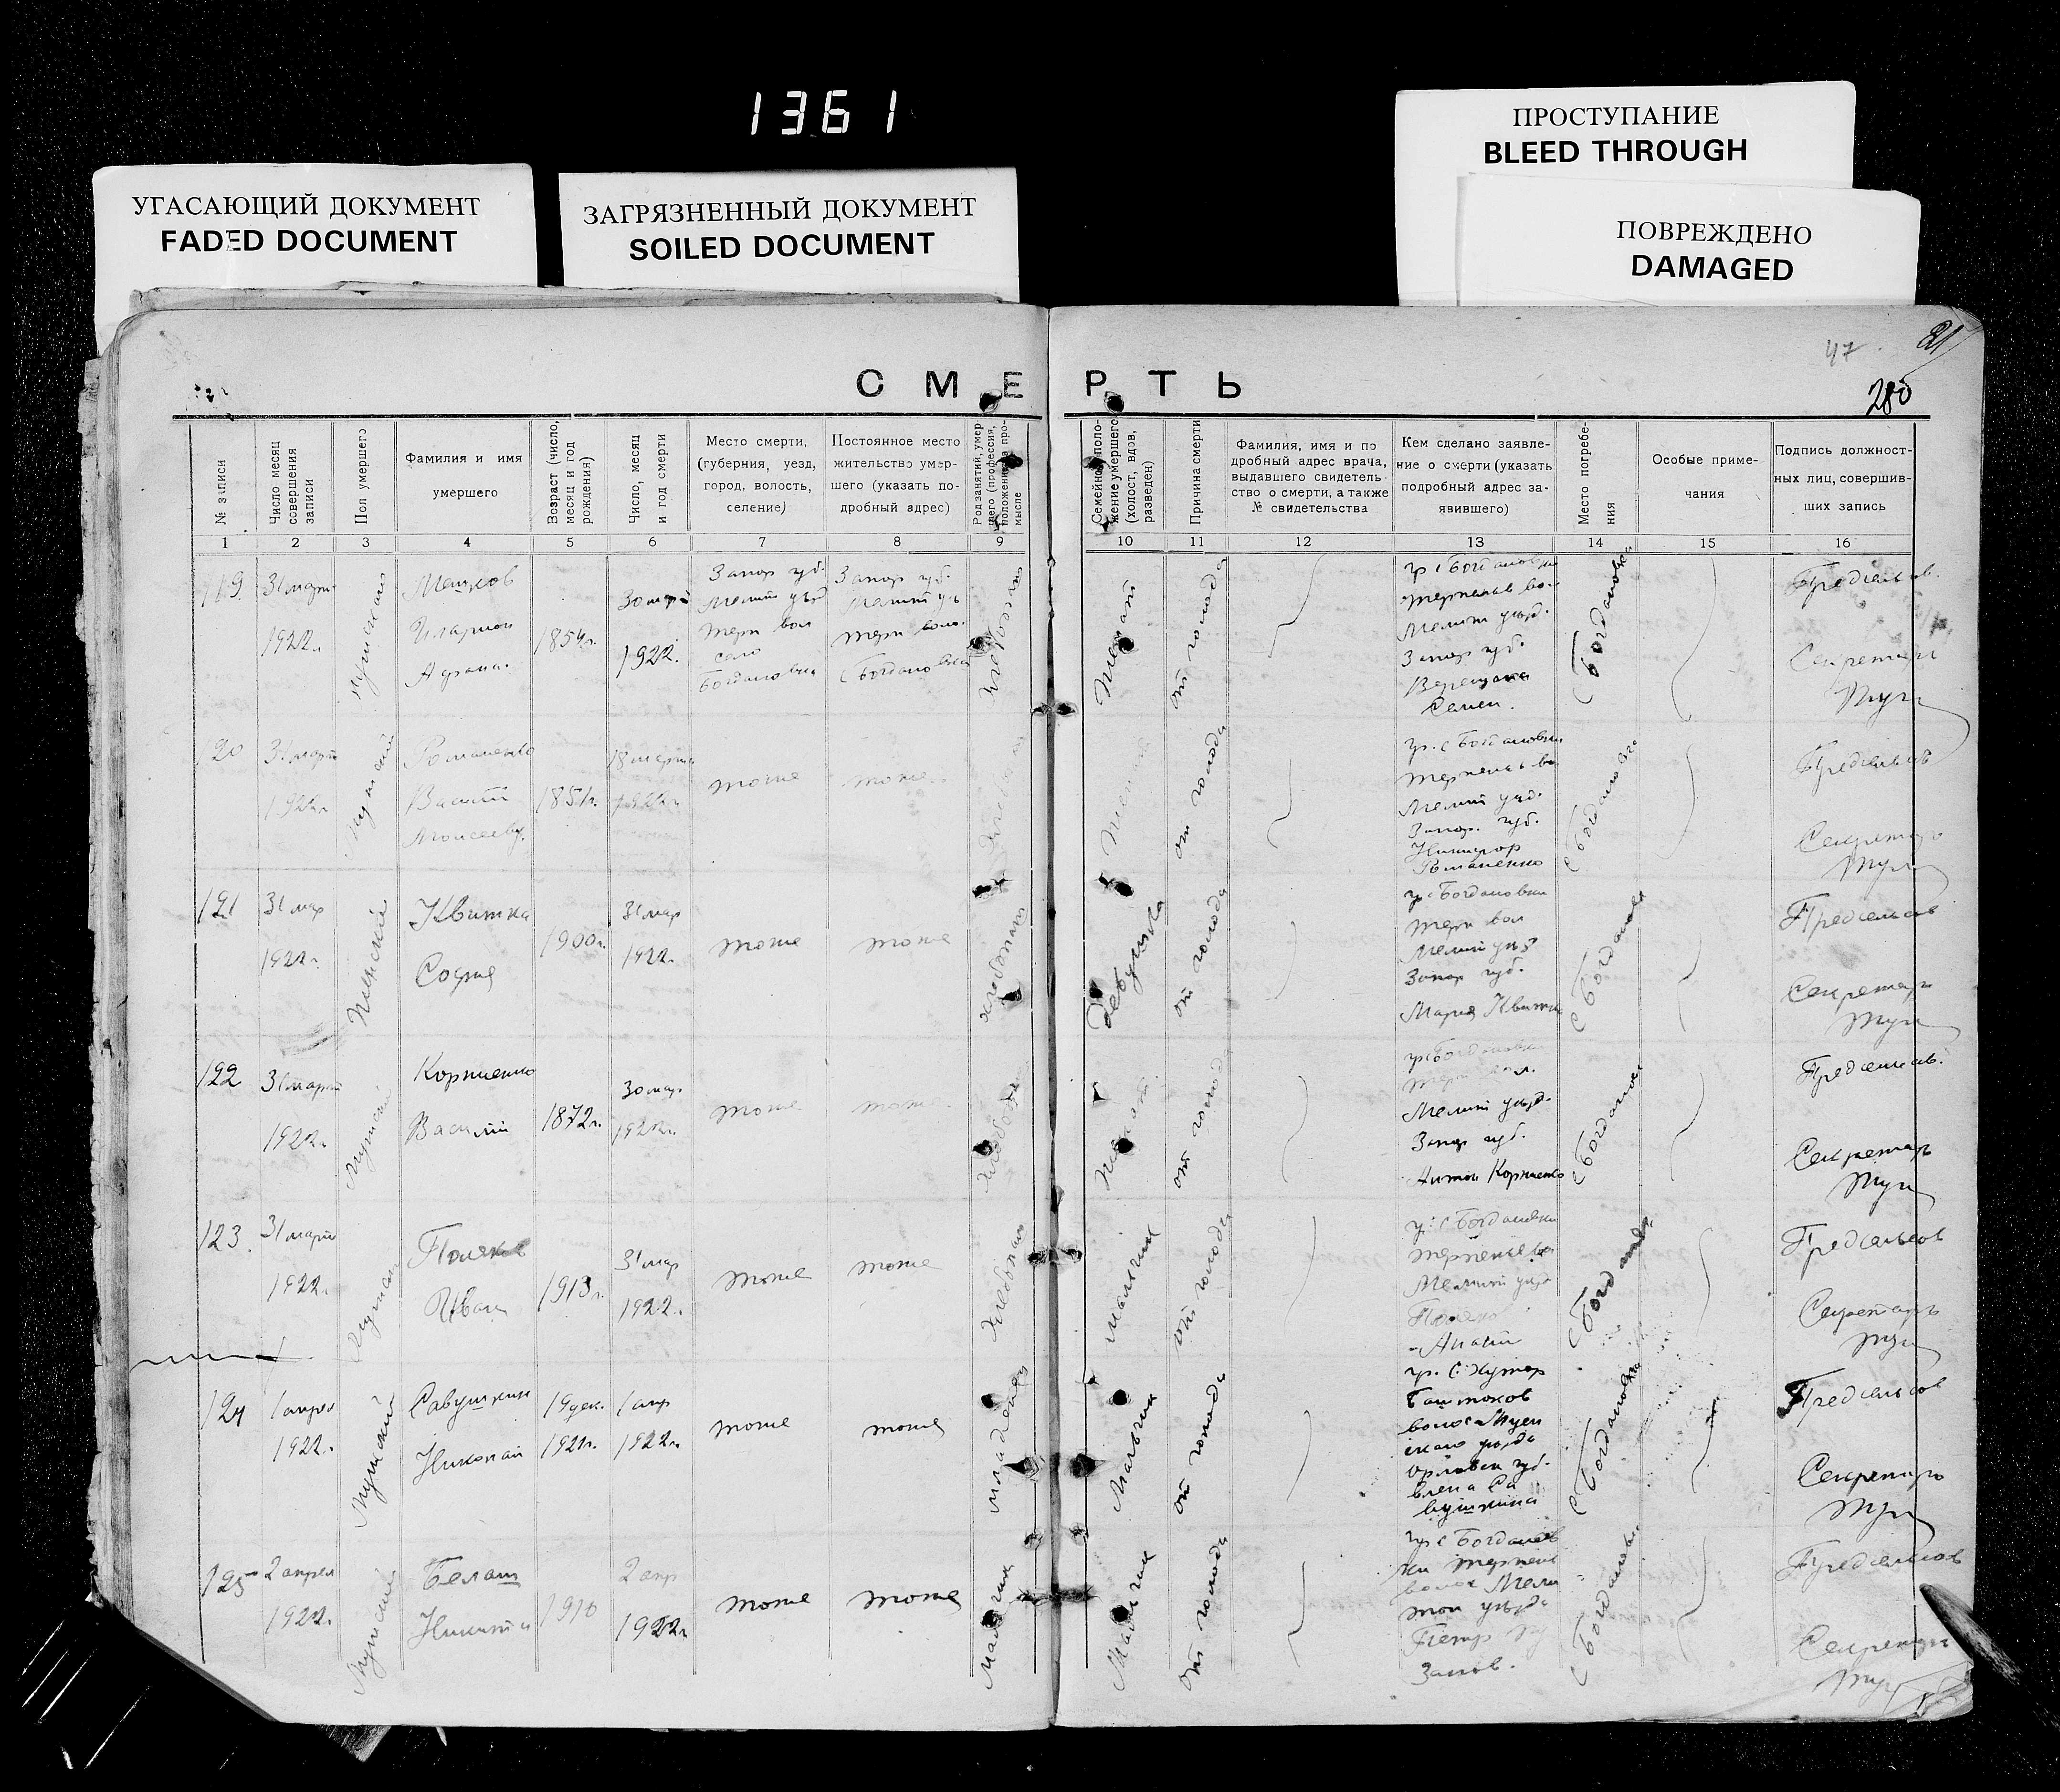 1361
ПРОСТУПАНИЕ
BLEED THROUGH
УГАСАЮЩИЙ ДОКУМЕНТ
FADED DOCUMENT
ЗАГРЯЗНЕННЫЙ ДОКУМЕНТ
SOILED DOCUMENT
ПОВРЕЖДЕНО
DAMAGED
47
81
280
СМЕРТЬ
№ записи
Число месяц
совершения
записи
Пол умершего
Фамилия и имя
умершего
Возраст (число,
месяц и год
рождения)
Число, месяц
и год смерти
Место смерти,
(губерния, уезд,
город, волость,
селение)
Постоянное место
жительство умер-
шего (указать по-
дробный адрес)
Род занятий, умер
шего (профессия,
положение в про-
мысле
Семейное поло-
жение умершего
(холост, вдов,
разведен)
Причина смерти
Фамилия, имя и по
дробный адрес врача,
выдавшего свидетель-
ство о смерти, а также
№ свидетельства
Кем сделано заявле-
ние о смерти (указать
подробный адрес за-
явившего)
Место погребе-
ния
Особые приме-
чания
Подпись должност-
ных лиц, совершив-
ших запись
1 2 3 4 5 6 7 8 9 10 11 12 13 14 15 16
119
31 март
1922г
мужской
Иларион
1854г.
30 мар
1922.
Запор губ.
Мелит уезд
Терп вол
село
Богдановка
Запор губ.
Мелит уъ
Терп воло.
с Богдановка
Женат
от голода
гр с Богдановки
Терпеньев во
Мелит уъзд.
Запор губ.
Верещака
Семен.
с Богдановка
Предсельсов.
Секретарь
120
31 март
1922г
Мужской
Романенко
Василий
Моисеев
1851г.
18 марта
1922г
тоже
тоже
Женат
от голода
гр. с Богдановки
Терпеньев во
Мелит уъзд.
Запор. губ.
Никифор
Романенко
с Богдановка
Предсельсов
Секретарь
121
31 мар
1922г.
Женский
Квитка
Софья
1900г.
31 мар
1922г.
тоже
тоже
хлебопаш
девушка
от голода
гр с Богдановки
Терп вол
Мелит уъзд
Запор губ.
Мария Квитка
с Богдановка
Предсельсов
Секретарь
122
31 март
1922г
Мужской
Корниенко
Василий
1872г.
30 мар
1922г.
тоже
тоже
от голода
гр с Богдановки
Мелит уъзд.
Запор губ.
Антон Корниенко
с Богдановка
Предсельсов.
Секретарь
123
31 март
1922г.
Мужской
Иван
1913г.
31 мар
1922г.
тоже
тоже
Хлебопаш
мальчик
от голода
гр. с Богдановки
Терпеньев во
Мелит уъзд
с Богдановка
Предсельсов
Секретарь
124
1 апрел
1922г.
Мужской
Савушкин
Николай
19 дек.
1921г.
1 апр
1922г
тоже
тоже
младенец
Мальчик
от голода
гр. с. Хутор
скаго уъзда
Орловск губ.
Елена Са
вушкина
с Богдановка
Предсельсов
Секретарь
125
2 апрел
1922г.
Мужской
Белаш
Никита
1910
2 апр
1922г
тоже
тоже
Мальчик
Мальчик
от голода
гр с Богданов
ки Терпень
волос Мели
топ уъзда
Петр
с Богдановка
Предсельсов
Секретарь